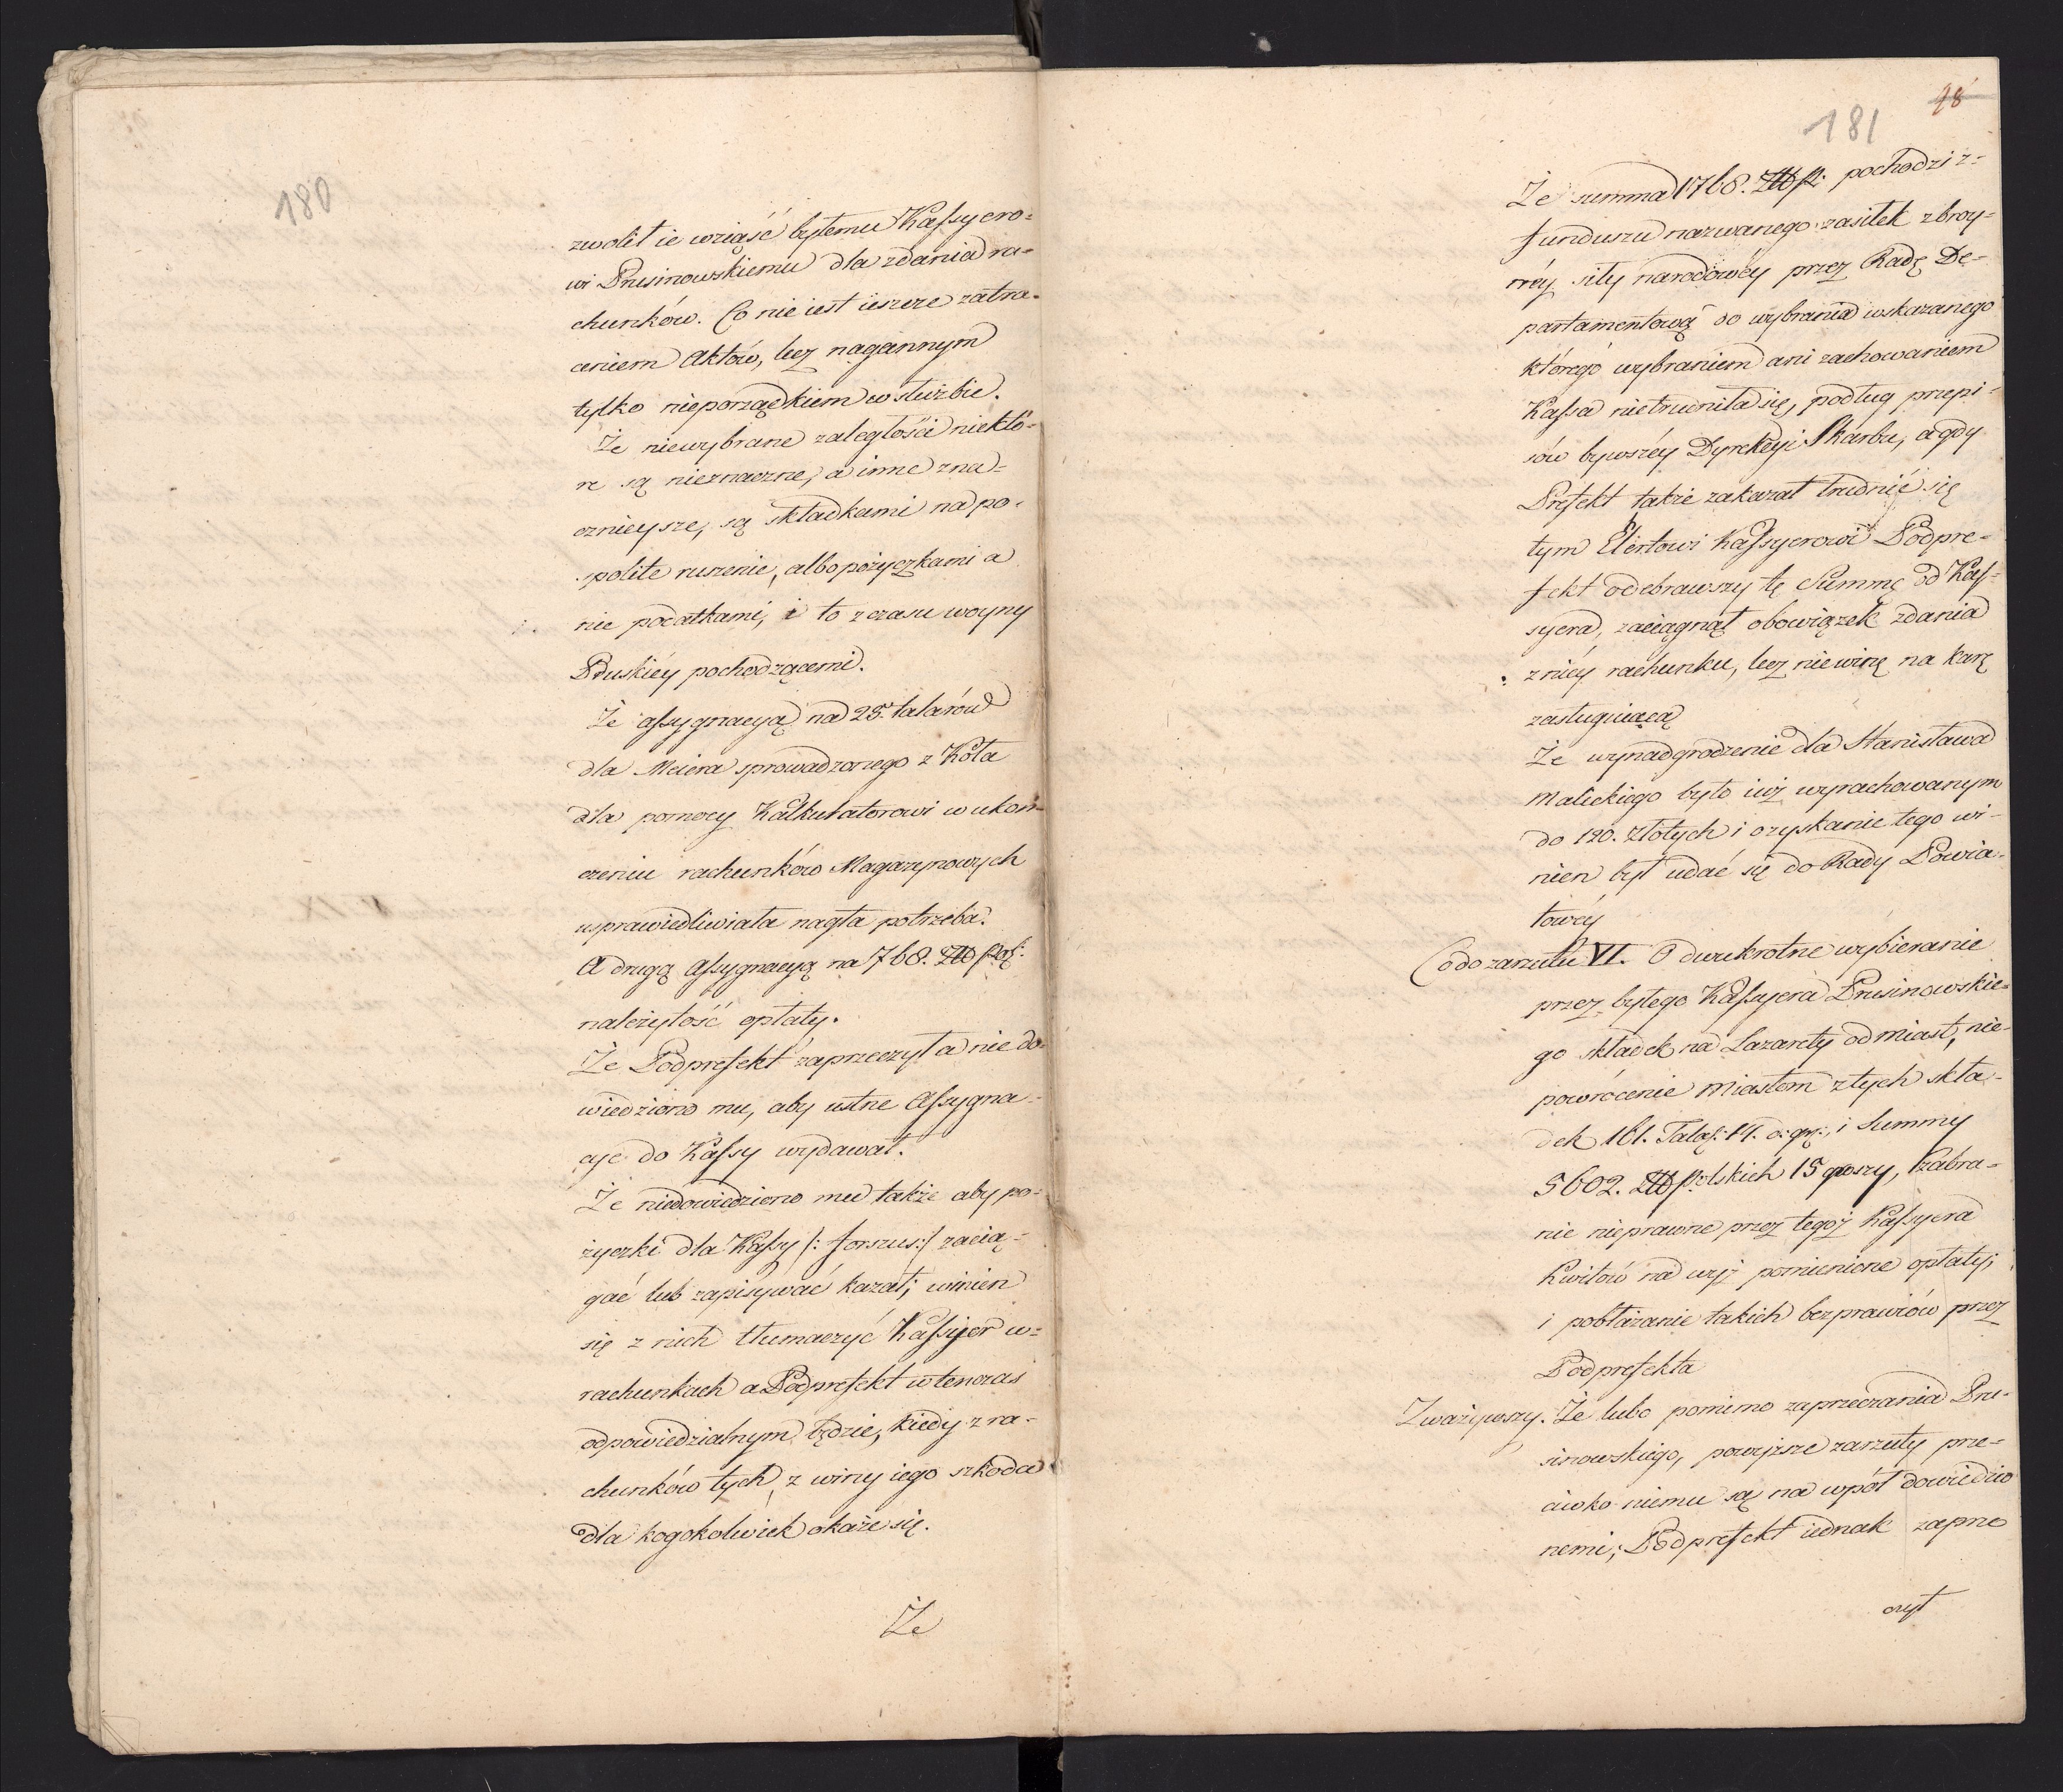 180
zwolił ie wziąść byłemu Kassyero-
wi Prusinowskiemu dla zdania ra-
chunków. Co nie iest ieszcze zatra-
ceniem Aktów, lecz nagannym
tylko nieporządkiem w służbie.
Że niewybrane zaległości niektó-
re są nieznaczne, a inne zna-
cznieysze, są składkami na po-
spolite ruszenie, albo pożyczkami a
nie podatkami, i to z czasu woyny
Pruskiéy pochodzącemi.
Że assygnacyą na 25. talarów
dla Meiera sprowadzonego z Koła
dla pomocy Kalkulatorowi w ukoń-
czeniu rachunków Magazynowych
usprawiedliwiała nagła potrzeba.
A drugą Assygnacyą na 768. Złł pol:
należytość opłaty.
Że Podprefekt zaprzeczył a nie do-
wiedziono mu, aby ustne Assygna-
cye do Kassy wydawał.
Że niedowiedziono mu także aby po-
życzki dla Kassy /: forszus :/ zacią-
gać lub zapisywać kazał; winien
się z nich tłumaczyć Kassyer w-
rachunkach a Podprefekt wtenczas
odpowiedzialnym będzie, kiedy z ra-
chunków tych, z winy iego szkoda
dla kogokolwiek okaże się.
Że
98
181
Że summa 1768. Złł p: pochodzi z-
funduszu nazwanego zasiłek zbroy-
néy siły narodowéy przez Radę De-
partamentową do wybrania wskazanego
którego wybraniem ani zachowaniem
Kassa nietrudniła się, podług przepi-
sów bywszéy Dyrekcyi Skarbu, a gdy
Prefekt także zakazał trudnić się
tym Elertowi Kassyerowi Podpre-
fekt odebrawszy tę Summę od Kas-
syera, zaciągnął obowiązek zdania
z niéy rachunku, lecz niewinę na karę
zasługuiącą
Że wynadgrodzenie dla Stanisława
Malickiego było iuż wyrachowanym
do 120. złotych i o zyskanie tego wi-
nien był udać się do Rady Powia-
towéy
Co do zarzutu VI. O dwukrotne wybieranie
przez byłego Kassyera Prusinowskie-
go składek na Lazarety od miast, nie-
powrócenie miastom z tych skła-
dek 161. Talar: 14. d: gr:, i Summy
5602. Złł polskich 15 groszy, zabra-
nie nieprawne przez tegoż Kassyera
Kwitów na wyż pomienione opłaty;
i pobłażanie takich bezprawiów przez
Podprefekta
Zważywszy. Że lubo pomimo zaprzeczania Pru-
sinowskiego, powyższe zarzuty prze-
ciwko niemu są na wpół dowiedzio
nemi; Podprefekt iednak zaprze
czył